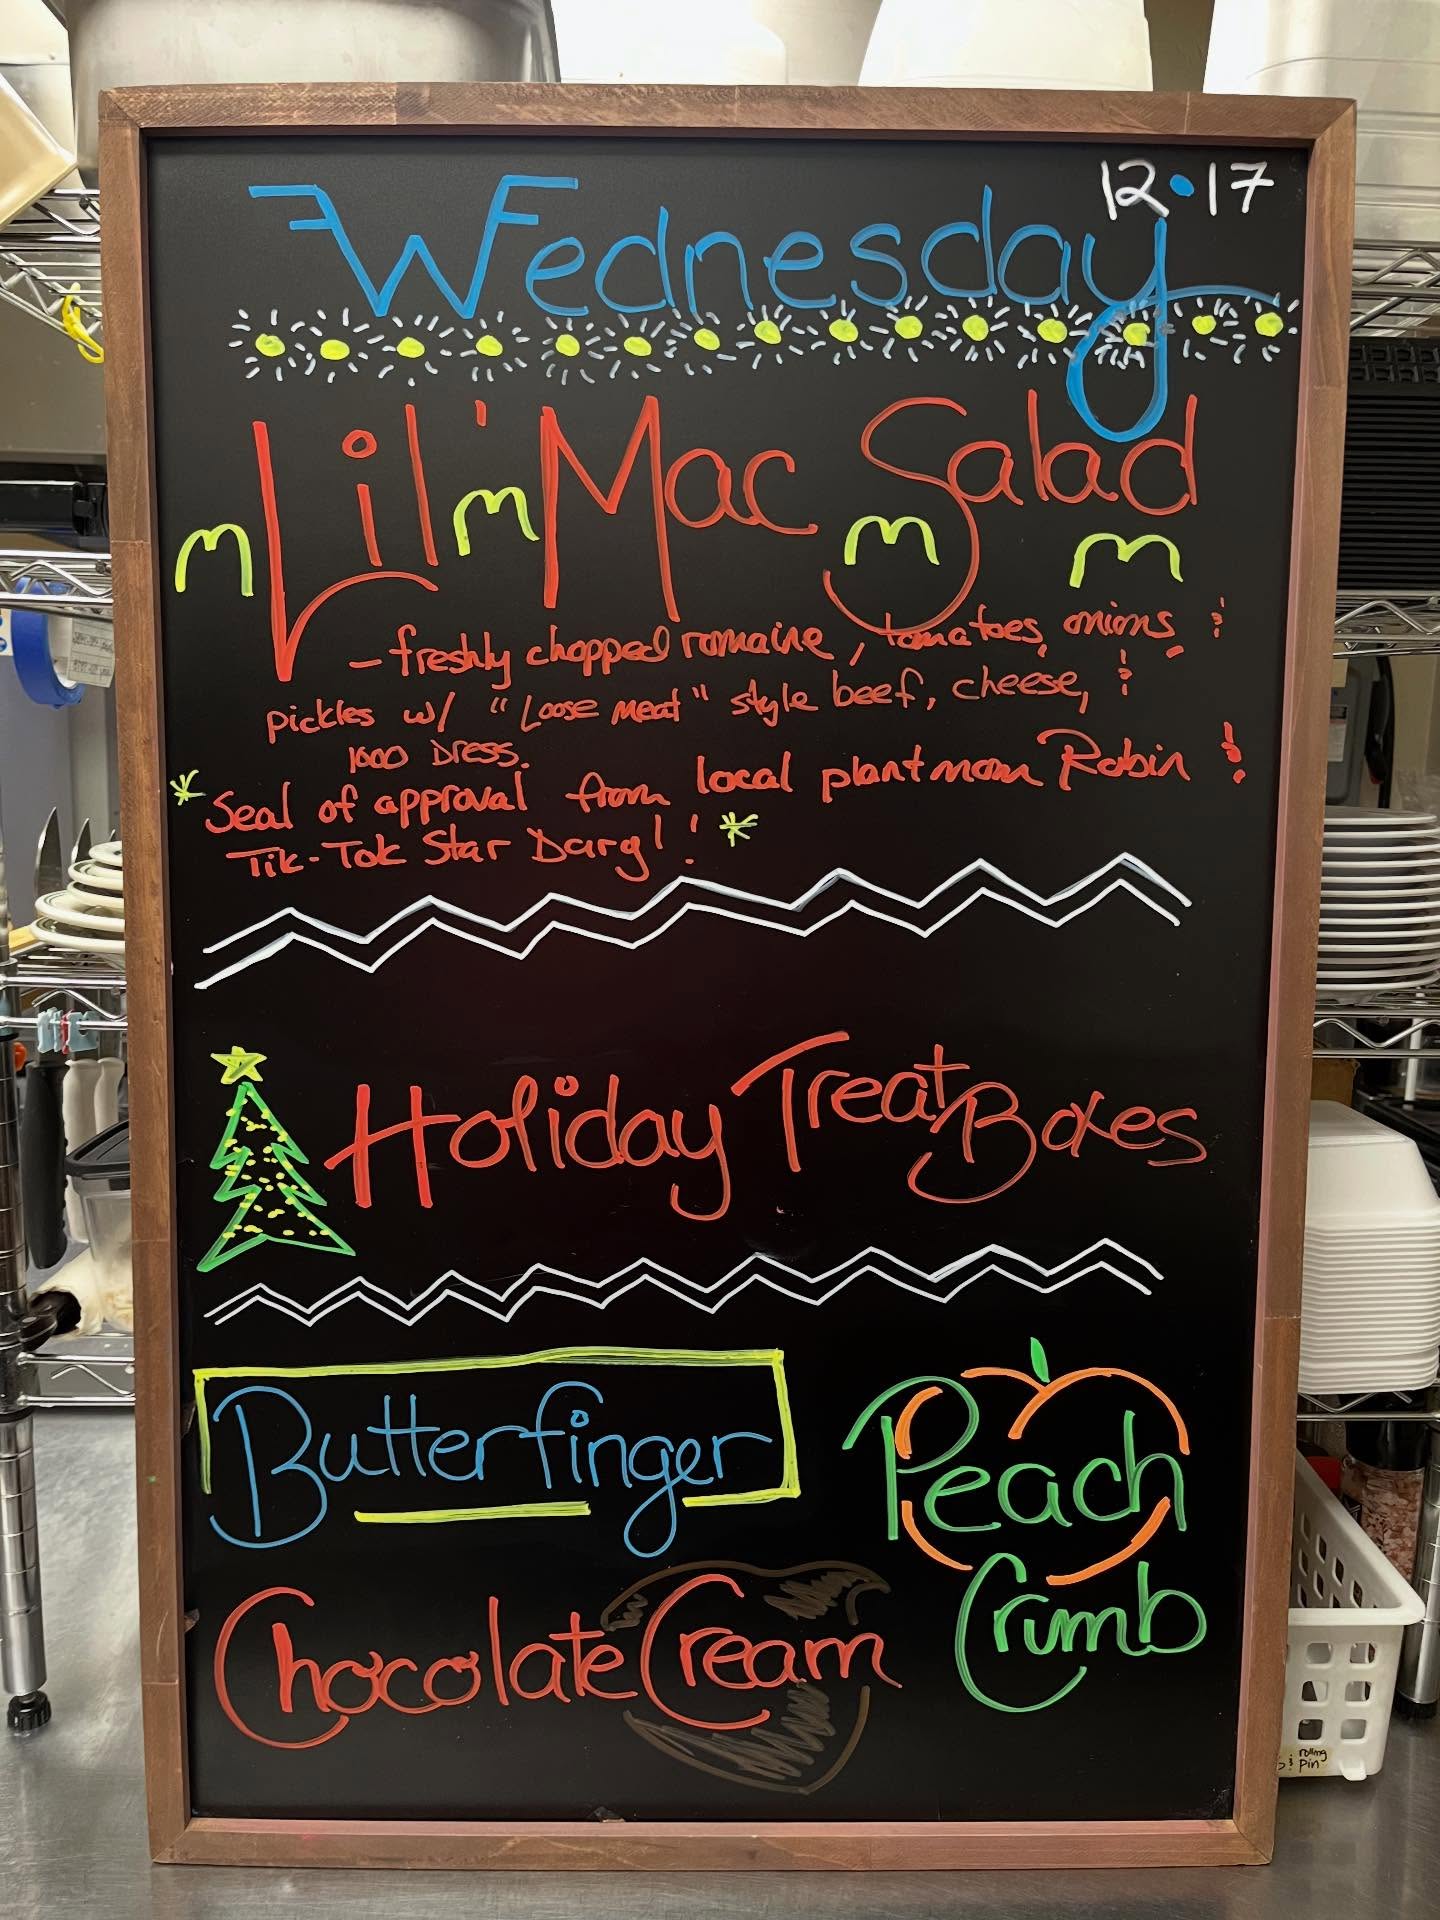 12•17
Wednesday
Lil' Mac Salad
m m m m
- freshly chopped romaine, tomatoes, onions, &
pickles w/ "Loose meat" style beef, cheese, &
1000 Dress.
*Seal of approval from local plant mom Robin &
Tik-Tok Star Daryl!*
Holiday Treat Boxes
Butterfinger
Peach
Crumb
Chocolate Cream
rolling
pin